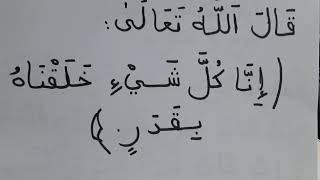 قَالَ اَللَّهُ تَعَالَىٰ:
(إِنَّا كُلَّ شَيْءٍ خَلَقْنَاهُ
بِقَدَرٍ)